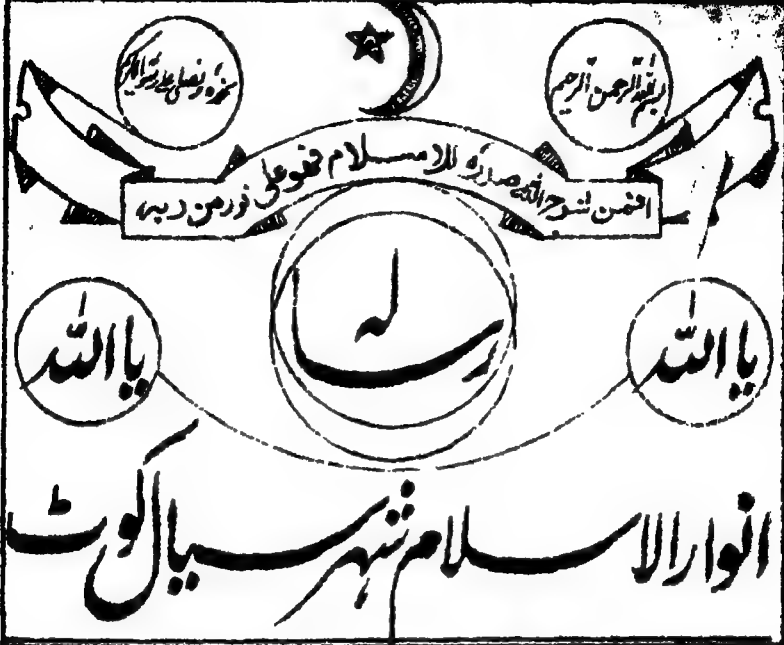 بسم اللہ الرحمن الرحیم
نحمدہ ونصلی علی رسولہ الکریم
افمن شرح اللہ صدرہ للاسلام فھو علی نور من ربہ
رسالہ
یا اللہ
یا اللہ
انوار الاسلام شہر سیال کوٹ